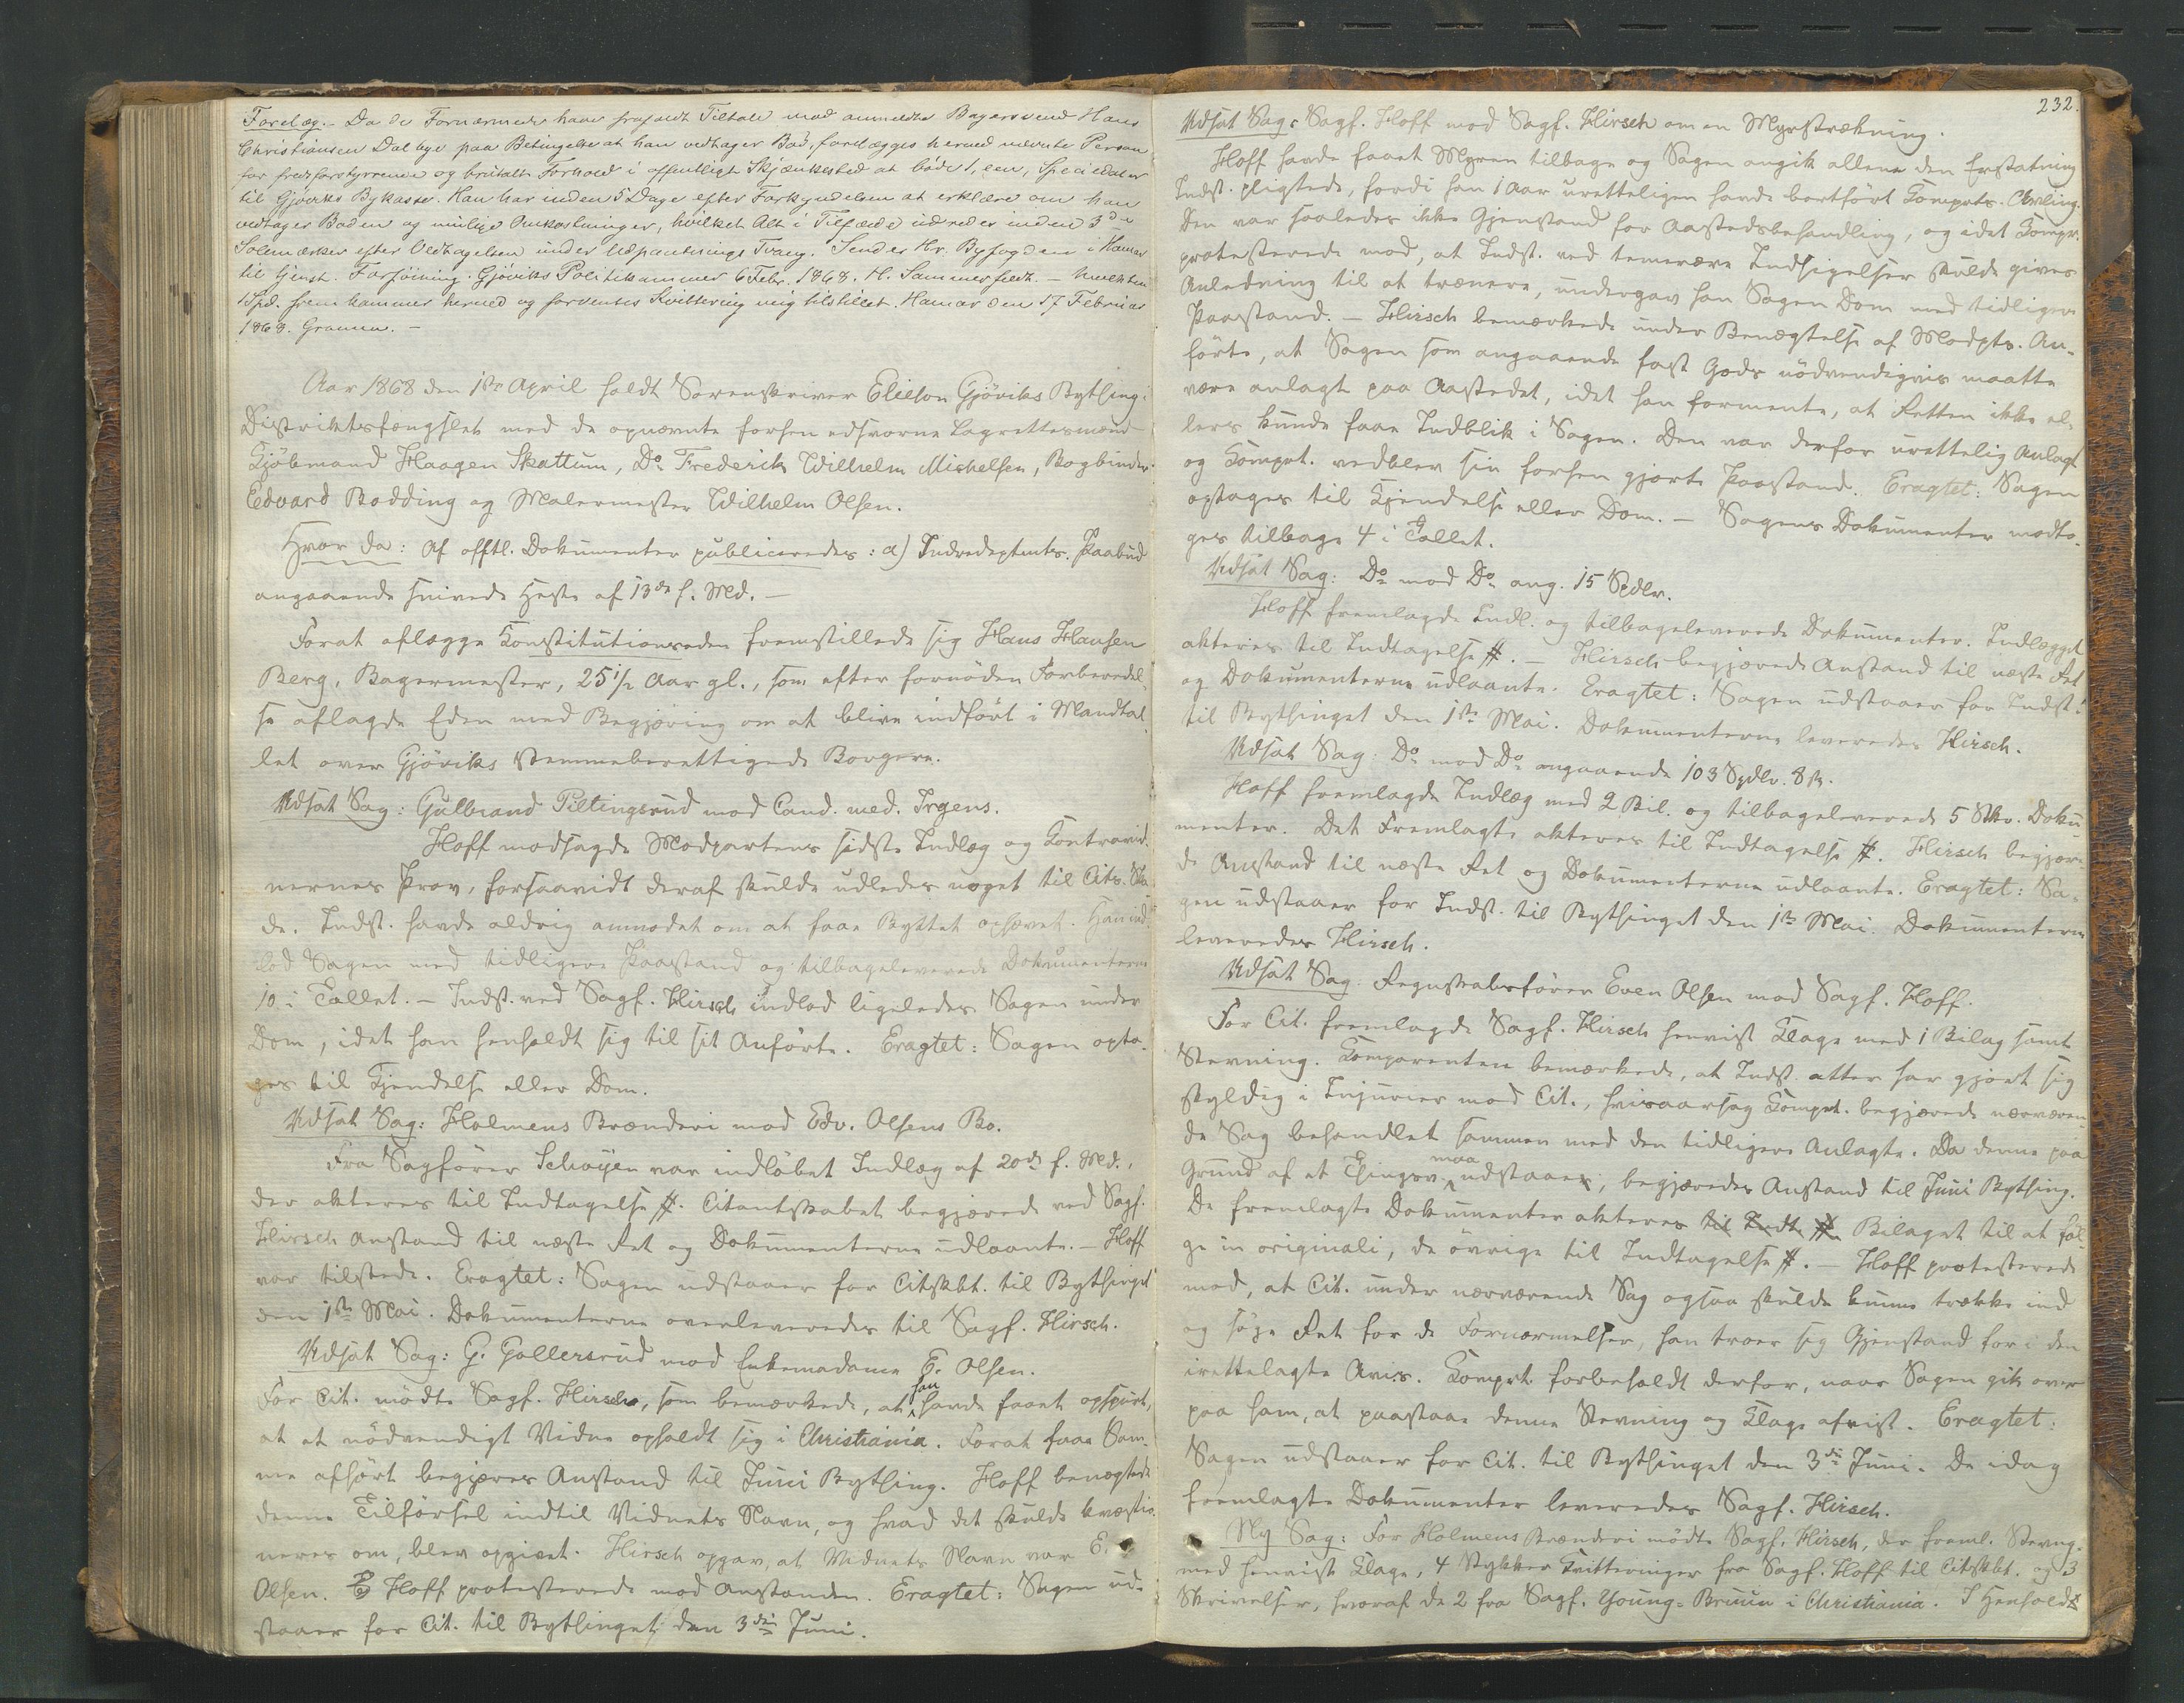 Forelæg. – Da de Fornærmede have frafaldt Tiltale mod anmeldte Bagersvend Hans
Christiansen Dalbye paa Betingelse at han vedtager Bod, forelægges herved nævnte Person
for fredsforstyrrende og brutalt Forhold i offentligt Skjænkested at bøde 1, een, Speciedaler
til Gjøviks Bykasse. Han har inden 5 Dage efter Forkyndelsen at erklære om han
vedtager Boden og mulige Omkostninger, hvilket Alt i Tilfælde udredes inden 3de
Solemærker efter Vedtagelsen under Udpantnings Tvang. Sendes Hr. Byfogden i Hamar
til tjenst. Forføining. Gjøviks Politikammer 6 Febr. 1868. H. Sommerfeldt. –
1 Spd. fremkommer herved og forventes Kvittering mig tilstillet. Hamar den 17 Februar
1868. Gramm. –
Aar 1868 den 1ste April holdt Sorenskriver Elieson Gjøviks Bything i
Distriktsfængslet med de opnævnte forhen edsvorne Lagrettesmænd
Kjøbmand Haagen Skattum, Do Frederik Wilhelm Michelsen, Bogbinder
Edvard Bodding og Malermester Wilhelm Olsen.
Hvor da: Af offtl. Dokumenter publiceredes: a) Indredeptmts. Paabud
angaaende snivede Heste af 13de f. Md. –
Forat aflægge Konstitutionseden fremstillede sig Hans Hansen
Berg, Bagermester, 25 1/2 Aar gl., som efter fornøden Forberedel-
se aflagde Eden med Begjøring om at blive indført i Mandtal
let over Gjøviks stemmeberettigede Borgere.
Udsat Sag: Gulbrand Piltingsrud mod Cand. med. Irgens.
Hoff modsagde Modpartens sidste Indlæg og Kontravid-
nernes Prov, forsaavidt deraf skulde udledes noget til Cits. Ska
de. Indst. havde aldrig anmodet om at faae Byttet ophævet. Han ind-
lod Sagen med tidligere Paastand og tilbageleverede Dokumenterne
10 i Tallet. – Indst. ved Sagf. Hirsch indlod ligeledes Sagen under
Dom, idet han henholdt sig til sit Anførte. Eragtet: Sagen opta-
ges til Kjendelse eller Dom.
Udsat Sag: Holmens Brænderi mod Edv. Olsens Bo.
Fra Sagfører Schøyen var indløbet Indlæg af 20de f. Md.,
der akteres til Indtagelse #. Citantskabet begjærede ved Sagf.
Hirsch Anstand til næste Ret og Dokumenterne udlaante. – Hoff
var tilstede. Eragtet: Sagen udstaaer for Citskbt. til Bythinget
den 1ste Mai. Dokumenterne overleveredes til Sagf. Hirsch.
Udsat Sag: G. Gollersrud mod Enkemadame E. Olsen.
For Cit. mødte Sagf. Hirsch, som bemærkede, at han havde faaet opspurt,
at et nødvendigt Vidne opholdt sig i Christiania. Forat faae Sam-
me afhørt begjæres Anstand til Juni Bything. Hoff benægtede
denne Tilførsel indtil Vidnets Navn, og hvad det skulde kvæstio-
neres om, blev opgivet. Hirsch opgav, at Vidnets Navn var E.
Olsen. Hoff protesterede mod Anstanden. Eragtet: Sagen ud-
staaer for Cit. til Bythinget den 3die Juni.
232.
Udsat Sag: Sagf. Hoff mod Sagf. Hirsch om en Myrstrækning.
Hoff havde faaet Myren tilbage og Sagen angik allene den Erstatning
Indst. pligtede, fordi han 1 Aar uretteligen havde bortført Komprts. Avling.
Den var saaledes ikke Gjenstand for Aastedsbehandling, og idet Kompr.
protesterede mod, at Indst. ved temerære Indsigelser skulde gives
Anledning til at trænere, undergav han Sagen Dom med tidligere
Paastand. – Hirsch bemærkede under Benægtelse af Modpts. An-
førte, at Sagen som angaaende fast Gods nødvendigvis maatte
være anlagt paa Aastedet, idet han formente, at Retten ikke el-
lers kunde faae Indblik i Sagen. Den var derfor urettelig anlagt
og Komprt. vedblev sin forhen gjorte Paastand. Eragtet: Sagen
optages til Kjendelse eller Dom. – Sagens Dokumenter modto-
ges tilbage 4 i Tallet.
Udsat Sag: Do mod Do ang. 15 Spdlr.
Hoff fremlagde Indl. og tilbageleverede Dokumenter. Indlægget
akteres til Indtagelse #. – Hirsch begjærede Anstand til næste Ret
og Dokumenterne udlaante. Eragtet: Sagen udstaaer for Indst.
til Bythinget den 1ste Mai. Dokumenterne leveredes Hirsch.
Udsat Sag: Do mod Do angaaende 103 Spdlr. 8 sk.
Hoff fremlagde Indlæg med 2 Bil. og tilbageleverede 5 Stkr. Doku
menter. Det Fremlagte akteres til Indtagelse #. Hirsch begjære-
de Anstand til næste Ret og Dokumenterne udlaante. Eragtet: Sa-
gen udstaaer for Indst. til Bythinget den 1ste Mai. Dokumenterne
leveredes Hirsch.
Udsat Sag: Regnskabsfører Even Olsen mod Sagf. Hoff.
For Cit. fremlagde Sagf. Hirsch henvist Klage med 1 Bilag samt
Stevning. Komparenten bemærkede, at Indst. atter har gjort sig
skyldig i Injurier mod Cit., hvisaarsag Komprt. begjærede nærværen-
de Sag behandlet sammen med den tidligere Anlagte. Da denne paa
Grund af et Thingsv. maa udstaaes, begjæredes Anstand til Juni Bything.
De fremlagte Dokumenter akteres til Indt. # Bilaget til at føl-
ge in originali, de øvrige til Indtagelse #. – Hoff protesterede
mod, at Cit. under nærværende Sag ogsaa skulde kunne trække ind
og søge Ret for de Fornærmelser, han troer sig Gjenstand for i den
irettelagte Avis. Komprt. forbeholdt derfor, naar Sagen gik over
paa ham, at paastaae denne Stevning og Klage afvist. Eragtet:
Sagen udstaaer for Cit. til Bythinget den 3die Juni. De idag
fremlagte Dokumenter leveredes Sagf. Hirsch.
Ny Sag: For Holmens Brænderi mødte Sagf. Hirsch, der freml. Stevng.
med henvist Klage, 4 Stykker Kvitteringer fra Sagf. Hoff til Citskbt. og 3
Skrivelser, hvoraf de 2 fra Sagf. Young-Bruun i Christiania. I Henhold